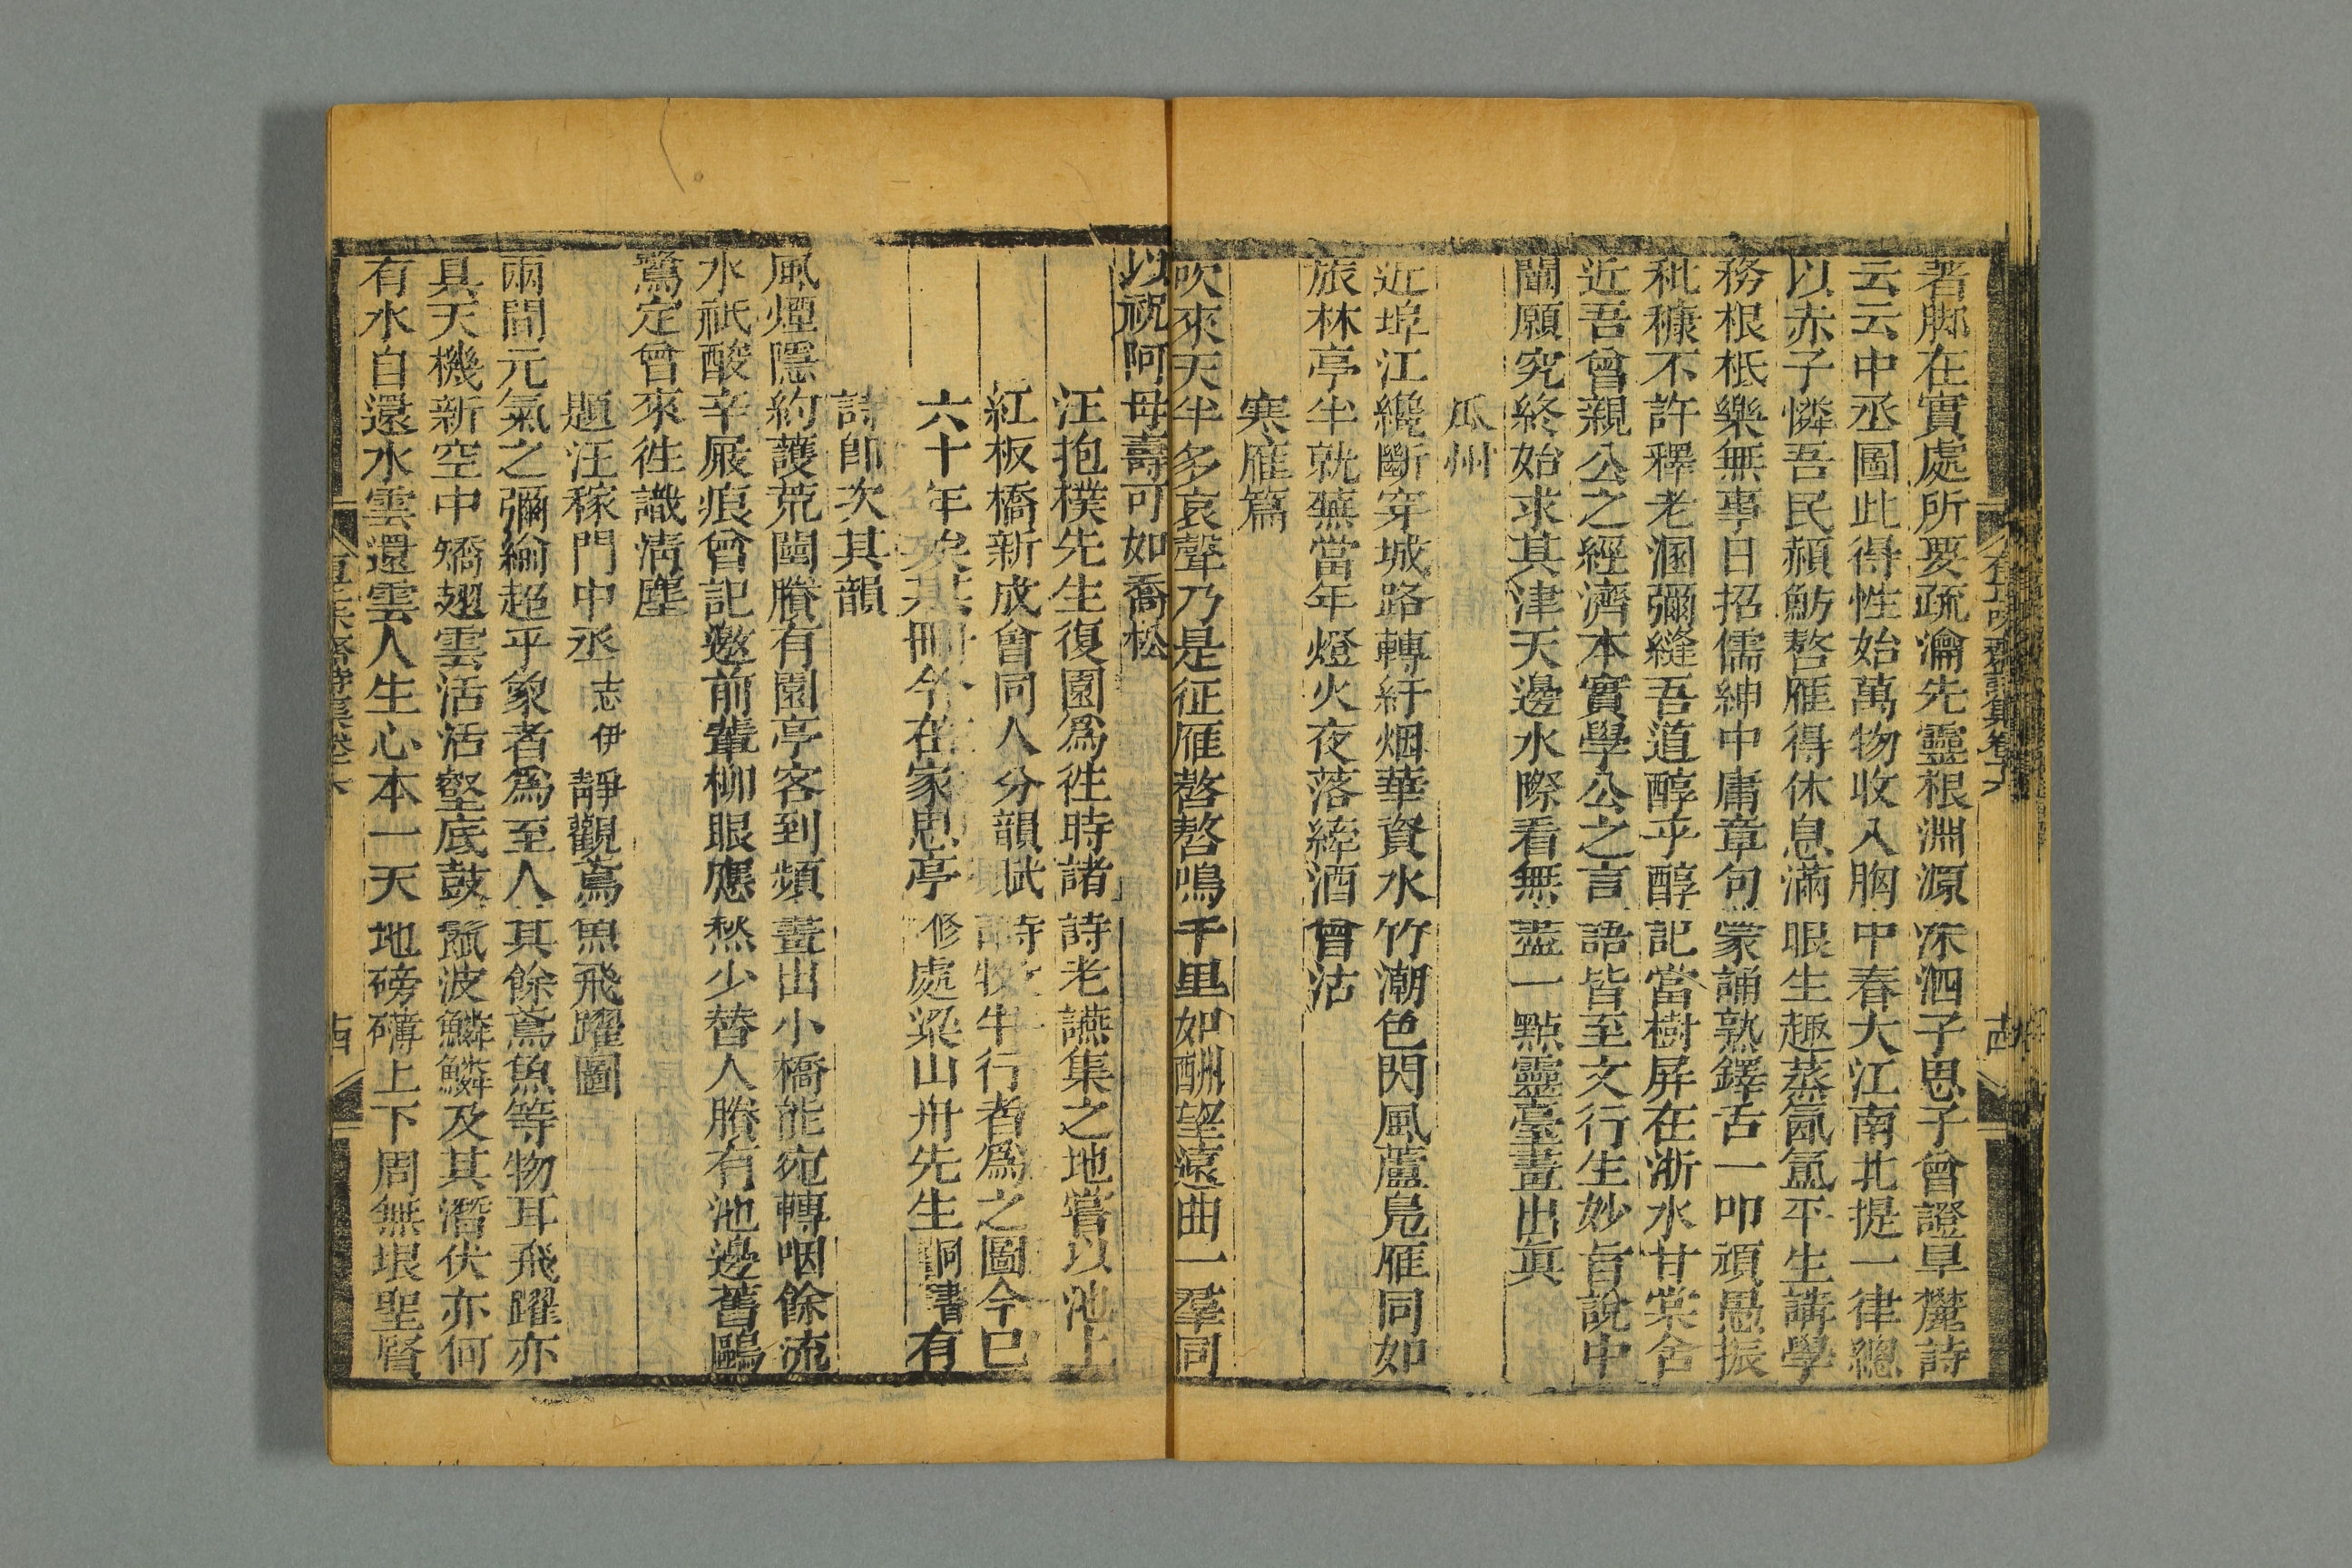 以祝阿母壽可如喬松
汪抱樸先生復園爲徃時諸詩老讌集之地嘗以池上
紅板橋新成會同人分韻賦詩牧牛行者爲之圖今已
六十年矣其冊今在家思亭修處梁山舟先生詗書有
詩卽次其韻
風煙隱約護荒闉賸有園亭客到頻畫出小橋能宛轉咽餘流
水祇酸辛屐痕曾記邀前輩柳眼應愁少替人賸有池邊舊鷗
鷺定曾來徃識淸塵
題汪稼門中丞志伊靜觀鳶魚飛躍圖
兩間元氣之彌綸超乎象者爲至人其餘鳶魚等物耳飛躍亦
具天機新空中矯翅雲活活壑底鼓鬣波鱗鱗及其潛伏亦何
有水自還水雲還雲人生心本一天地磅礴上下周無垠聖賢
著脚在實處所要疏瀹先靈根淵源洙泗子思子曾證旱麓詩
云云中丞圖此得性始萬物收入胸中春大江南北提一律總
以赤子憐吾民頳魴嗸雁得休息滿眼生趣蒸氤氳平生講學
務根柢樂無事日招儒紳中庸章句蒙誦熟鐸舌一叩頑愚振
秕糠不許釋老溷彌縫吾道醇乎醇記當樹屏在浙水甘棠舍
近吾曾親公之經濟本實學公之言語皆至文行生妙旨說中
闡願究終始求其津天邊水際看無盡一點靈臺畫出眞
瓜州
近埠江纔斷穿城路轉紆烟華資水竹潮色閃風蘆鳧雁同如
旅林亭半就蕪當年燈火夜落絳酒曾沽
寒雁篇
吹來天半多哀聲乃是征雁嗸嗸鳴千里如酬望遠曲一羣同